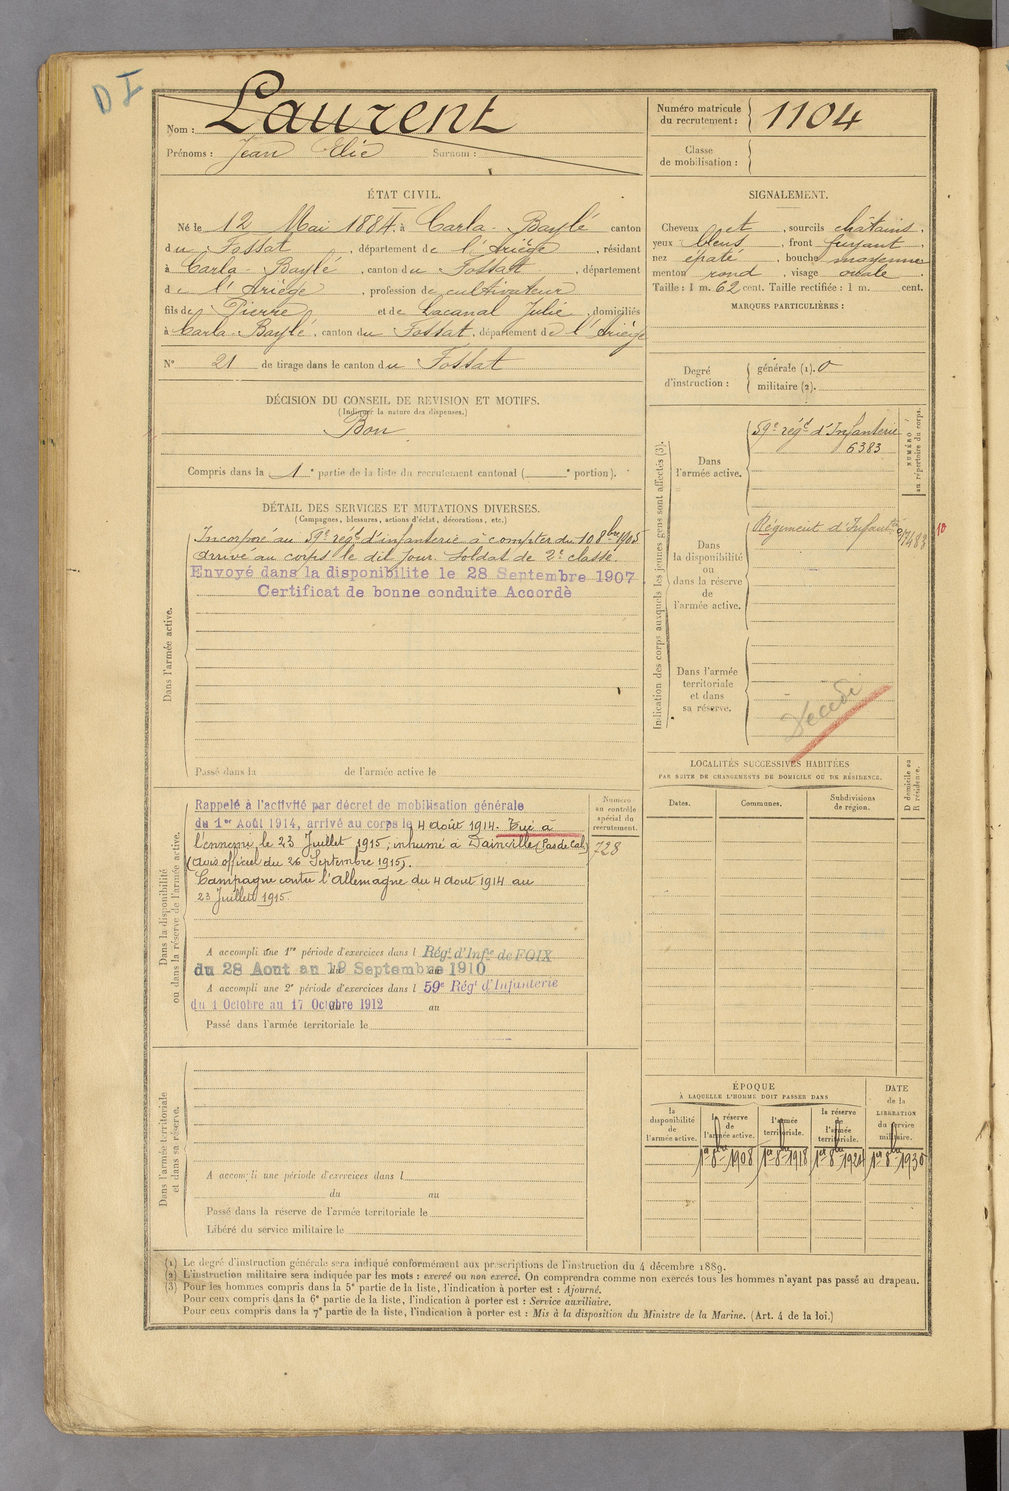 D I
Nom : Laurent
Prénoms : Jean Elie Surnom :
Numéro matricule
du recrutement : 1104
Classe
de mobilisation :
ÉTAT CIVIL.
Né le 12 Mai 1884, à Carla-Baylé canton
du Fossat, département de l'Ariège, résidant
à Carla-Baylé, canton du Fossat, département
de l'Ariège, profession de cultivateur
fils de Pierre et de Lacanal Julie, domiciliés
à Carla-Baylé, canton du Fossat, département de l'Ariège
N° 21 de tirage dans le canton du Fossat
SIGNALEMENT.
Cheveux et, sourcils châtains,
yeux bleus, front fuyant,
nez épaté, bouche moyenne
menton rond, visage ovale.
Taille : 1 m. 62 cent. Taille rectifiée : 1 m. cent.
MARQUES PARTICULIÈRES :
Degré
d'instruction :
générale (1). 0
militaire (2).
DÉCISION DU CONSEIL DE REVISION ET MOTIFS.
(Indiquer la nature des dispenses.)
Bon
Compris dans la 1e partie de la liste du recrutement cantonal ( e portion).
DÉTAIL DES SERVICES ET MUTATIONS DIVERSES.
(Campagnes, blessures, actions d'éclat, décorations, etc.)
Dans l'armée active.
Incorporé au 59e régt d'infanterie à compter du 10 8bre 1905
arrivé au corps le dit jour. Soldat de 2e classe.
Envoyé dans la disponibilite le 28 Septembre 1907
Certificat de bonne conduite Accordè
Passé dans la de l'armée active le
Indication des corps auxquels les jeunes gens sont affectés (3).
NUMÉRO
au répertoire du corps.
Dans
l'armée active.
59e régt d'Infanterie
6383
Dans
la disponibilité
ou
dans la réserve
de
l'armée active.
Régiment d'Infante
10
Dans l'armée
territoriale
et dans
sa réserve.
Décédé
Dans la disponibilité
ou dans la réserve de l'armée active.
Numéro
au contrôle
spécial du
recrutement.
728
Rappelé à l'activité par décret de mobilisation générale
du 1er Août 1914, arrivé au corps le 4 août 1914. Tué à
l'ennemi le 23 Juillet 1915; inhumé à Dainville (Pas de Cal)
(avis officiel du 26 Septembre 1915).
Campagne contre l'Allemagne du 4 août 1914 au
23 Juillet 1915.
A accompli une 1re période d'exercices dans l Régt d'Infie de FOIX
du 28 Aout au 19 Septembre 1910
A accompli une 2e période d'exercices dans l 59e Régt d'Infanterie
du 1 Octobre au 17 Octobre 1912 au
Passé dans l'armée territoriale le
LOCALITÉS SUCCESSIVES HABITÉES
PAR SUITE DE CHANGEMENTS DE DOMICILE OU DE RÉSIDENCE.
D domicile ou
R résidence.
Dates. Communes. Subdivisions
de région.
Dans l'armée territoriale
et dans sa réserve.
A accompli une période d'exercices dans l
du au
Passé dans la réserve de l'armée territoriale le
Libéré du service militaire le
ÉPOQUE
À LAQUELLE L'HOMME DOIT PASSER DANS
DATE
de la
LIBÉRATION
du service
militaire.
la
disponibilité
de
l'armée active.
la réserve
de
l'armée active.
l'armée
territoriale.
la réserve
de
l'armée
territoriale.
1er 8bre 1908 1er 8bre 1918 1er 8bre 1924 1er 8bre 1930
(1) Le degré d'instruction générale sera indiqué conformément aux prescriptions de l'instruction du 4 décembre 1889.
(2) L'instruction militaire sera indiquée par les mots : exercé ou non exercé. On comprendra comme non exercés tous les hommes n'ayant pas passé au drapeau.
(3) Pour les hommes compris dans la 5e partie de la liste, l'indication à porter est : Ajourné.
Pour ceux compris dans la 6e partie de la liste, l'indication à porter est : Service auxiliaire.
Pour ceux compris dans la 7e partie de la liste, l'indication à porter est : Mis à la disposition du Ministre de la Marine. (Art. 4 de la loi.)